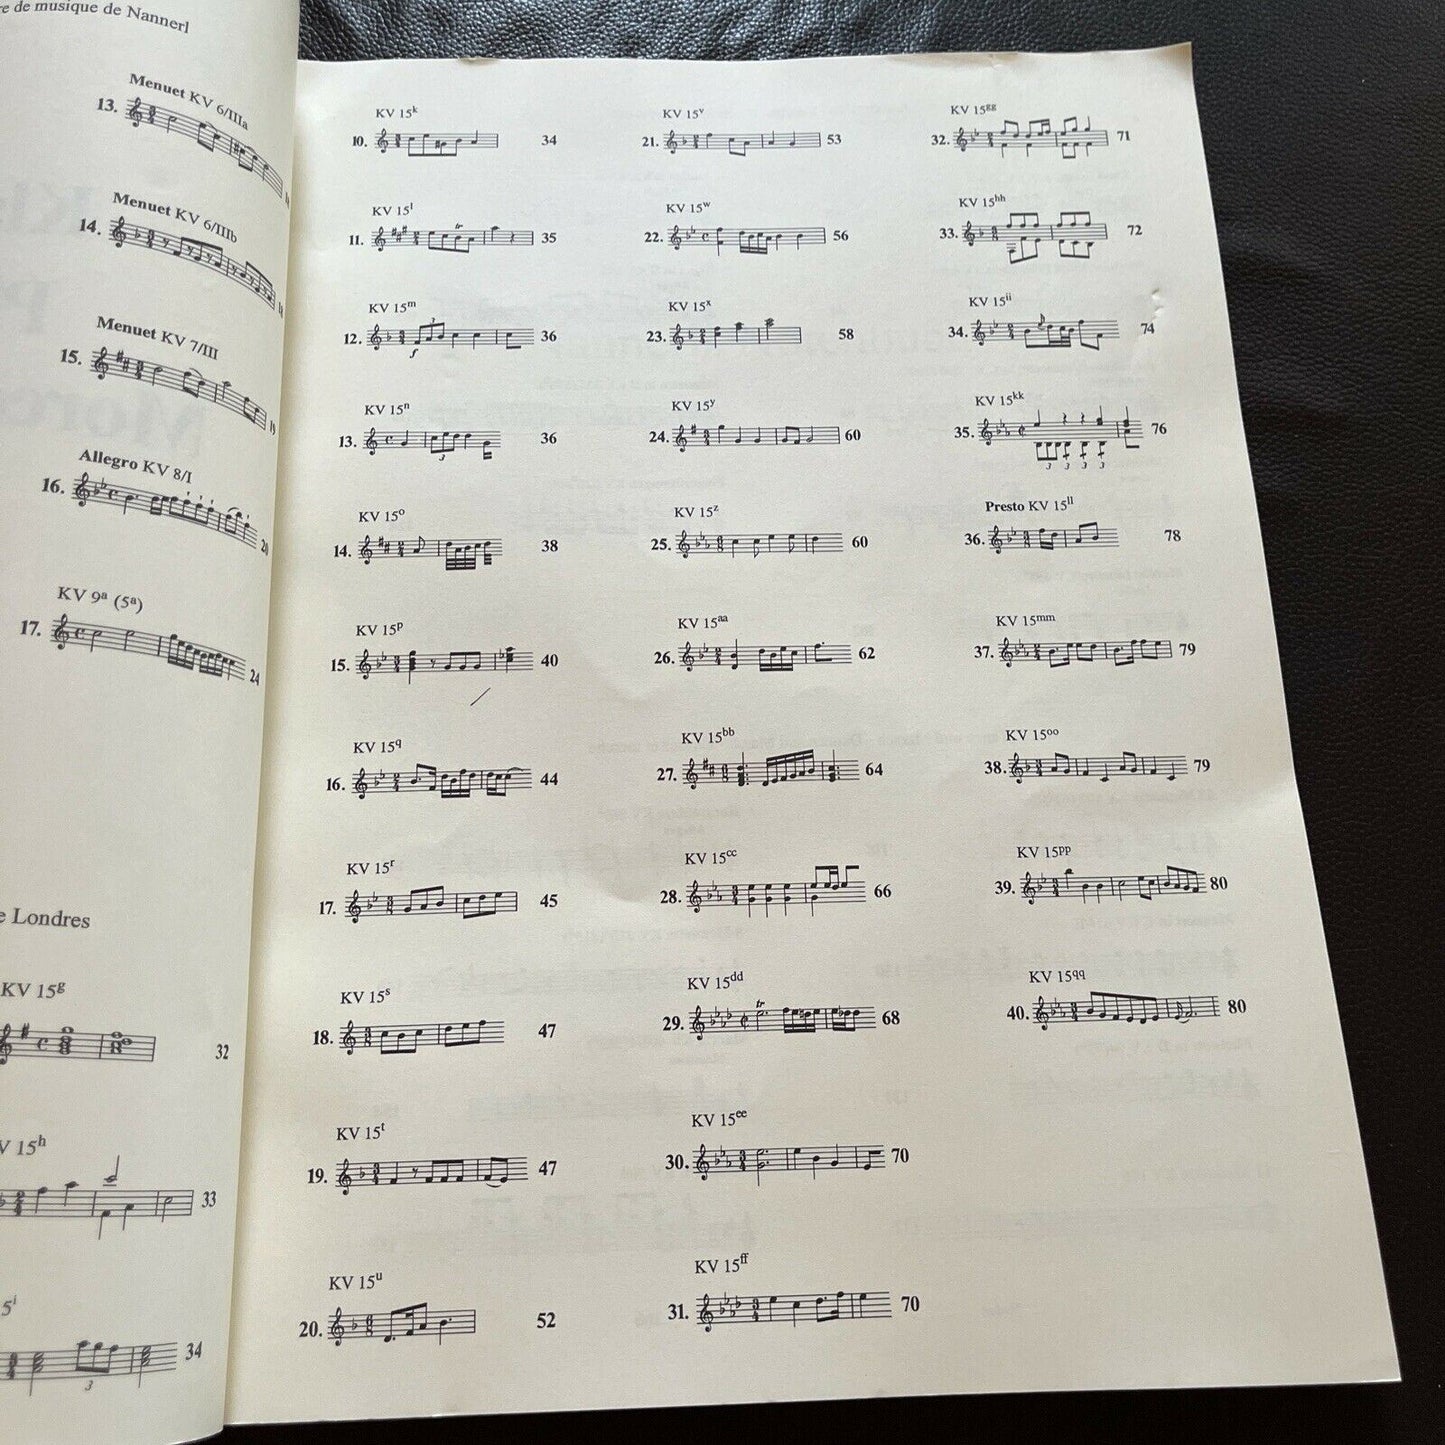 re de musique de Nannerl
Menuet KV 6/IIIa
13.
Menuet KV 6/IIIb
14.
Menuet KV 7/III
15.
19
Allegro KV 8/I
16.
20
KV 9a (5a)
17.
24
e Londres
KV 15g
32
V 15h
33
5i
34
3
KV 15k
10. 34
KV 15l
tr
11. 35
KV 15m
3
12. 36
f
KV 15n
13. 36
3
KV 15o
14. 38
KV 15p
15. 40
KV 15q
16. 44
KV 15r
17. 45
KV 15s
18. 47
KV 15t
19. 47
KV 15u
20. 52
KV 15v
21. 53
KV 15w
22. 56
KV 15x
23. 58
KV 15y
24. 60
KV 15z
25. 60
KV 15aa
26. 62
KV 15bb
27. 64
KV 15cc
28. 66
KV 15dd
tr
29. 68
KV 15ee
30. 70
KV 15ff
31. 70
KV 15gg
32. 71
KV 15hh
33. 72
KV 15ii
34. 74
KV 15kk
35. 76
3 3 3 3
Presto KV 15ll
36. 78
KV 15mm
37. 79
KV 15oo
38. 79
KV 15pp
39. 80
KV 15qq
40. 80